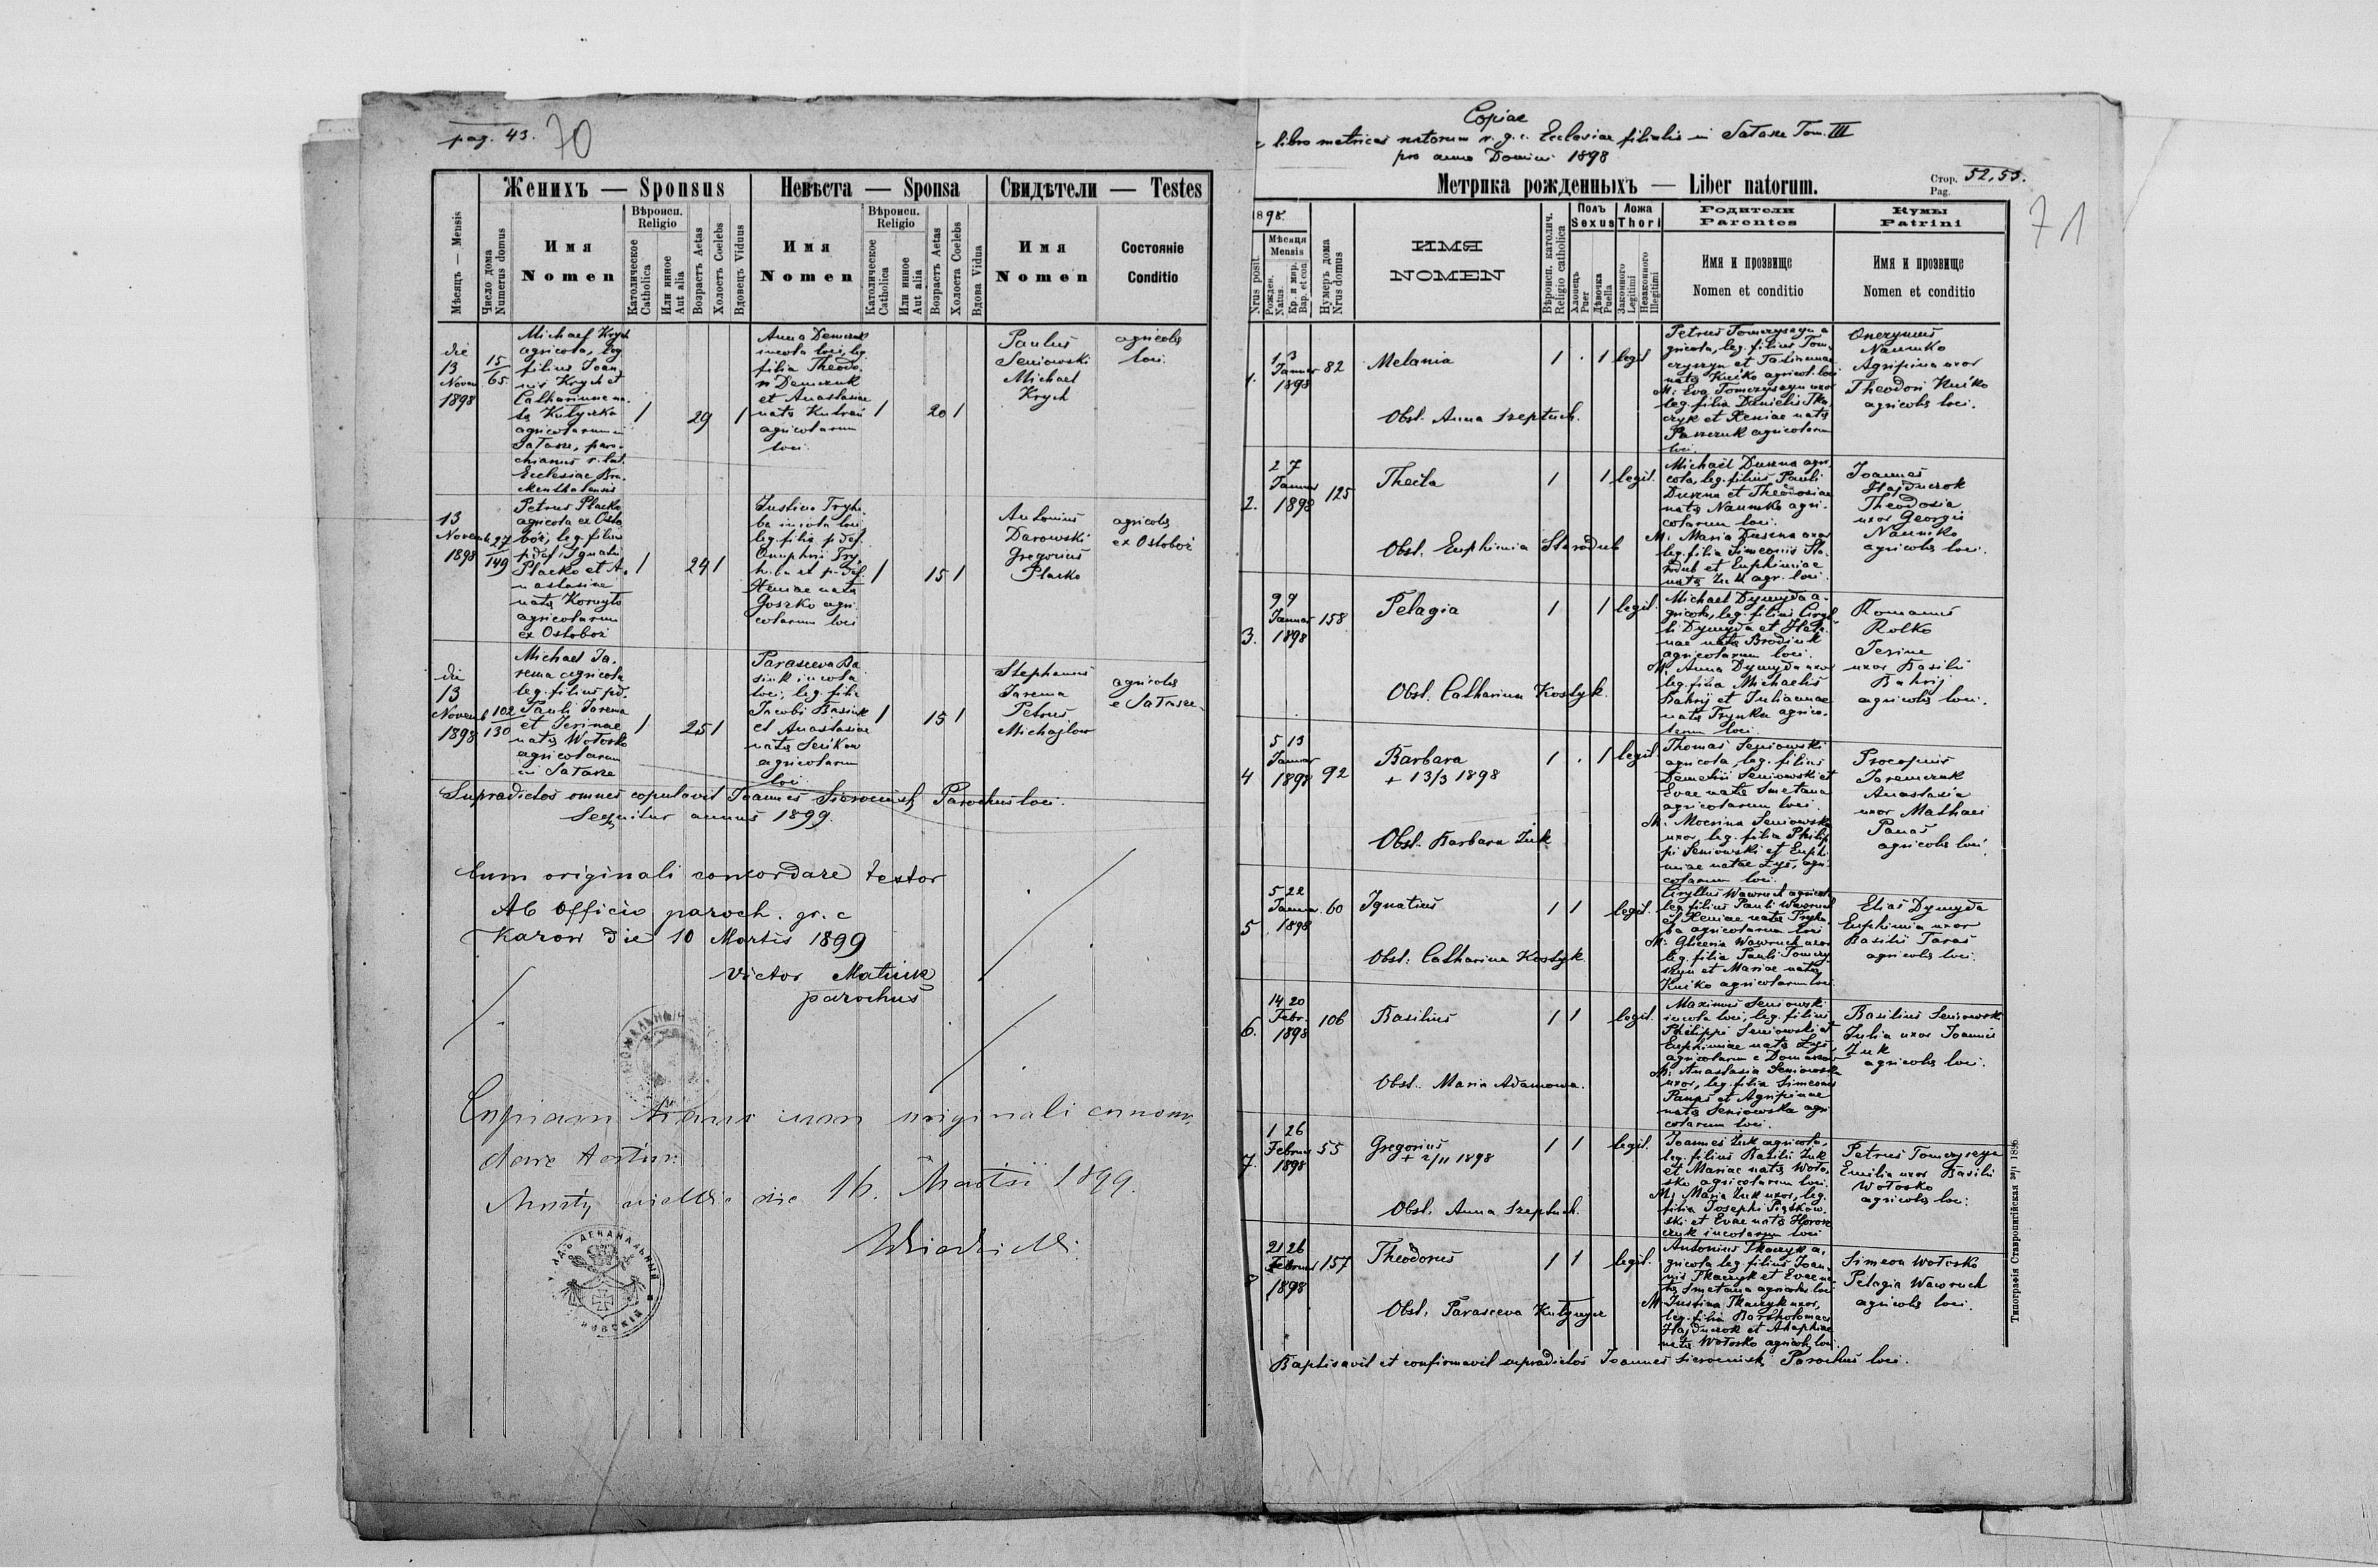 pag. 43. 70
Женихъ — Sponsus
Невѣста — Sponsa
Свидѣтели — Testes
Мѣсяцъ — Mensis
Число дома
Numerus domus
Имя
Nomen
Вѣроисп.
Religio
Католическое
Catholica
Или инное
Aut alia
Возрастъ Aetas
Холостъ Coelebs
Вдовецъ Viduus
Имя
Nomen
Вѣроисп.
Religio
Католическое
Catholica
Или инное
Aut alia
Возрастъ Aetas
Холоста Coelebs
Вдова Vidua
Имя
Nomen
Состоянie
Conditio
die
13
Novem
1898
15
65
Michael Krych
agricola, leg
filius Joan
nis Krych et
Catharinae na
ta
agricolarum in
Sałasze, paro-
chianus r. lat.
Ecclesiae Bru
ckenthalensis
1
29
1
Anna Demczuk
incola loci, leg.
filia Theodo
ri Demczuk
et Anastasiae
nata
agricolarum
loci.
1
20 1
Paulus
Seniowski
Michael
Krych
agricolae
loci.
13
Novemb
1898
27
149
Petrus Placko
agricola ex Osto
boż, leg. filius
pdef. Ignatii
Placko et A-
nastasiae
nata Kornyło
agricolarum
ex Ostoboż
1
24 1
Justina Tryh
ba incola loci
leg. filia pdef.
Onuphrii Try
h. ba et pdef.
Xeniae nata
Goszko agri
colarum loci
1
15 1
Antonius
Darowski
Gregorius
Placko
agricolae
ex Ostoboż
die
13
Novemb
1898
102
130
Michael Ja.
rema agricola
leg. filius pd.
Pauli Jarema
et Irinae
nata Wołosko
agricolarum
in Sałasze
1
25 1
Parasceva Ba
siuk incola
loci, leg. filia
Jacobi Basiuk
et Anastasiae
nata Senkow
agricolarum
loci
1
15 1
Stephanus
Jarema
Petrus
Michajłow
agricolae
e Sałasze
Supradictos omnes copulavit Joannes Parochus loci.
Sequitur annus 1899.
Cum originali concordare testor
Ab Officio paroch. gr. c
Karow die 10 Martis 1899
Victor Matiuk
parochus
Copiam hanc cum originali concor
dare testor
die 16. Martii 1899.
Copiae
e libro metrices natorum r. g. c. Ecclesiae filialis in Sałasze Tom. III
pro anno Domini 1898
Метрика рожденныхъ — Liber natorum.
Стор.
Pag.
52, 53.
71
1898.
Nrus posit.
Мѣсяця
Mensis
Рожден.
Natus.
Кр. и мир.
Bap. et con
Нумеръ дома
Nrus domus
ИМЯ
NOMEN
Вѣроисп. католич.
Religio catholica
Полъ
Sexus
Хлопецъ
Puer
Дѣвочка
Puella
Ложа
Thori
Законного
Legitimi
Незаконного
Illegitimi
Родители
Parentes
Имя и прозвище
Nomen et conditio
Кумы
Patrini
Имя и прозвище
Nomen et conditio
1.
1 3
Januar
1898
82
Melania
1 . 1 legit
Obst. Anna Szeptuch.
Petrus Tomczyszyn a
gricola, leg. filius Tom-
czyszyn et Tatiannae
nata Kuśko agricol. loci
M: Eva Tomczyszyn uxor
leg. filia Danielis Tka
czyk et Xeniae nata
Paszczuk agricolarum
loci.
Onezymus
Naumko
Agripina uxor
Theodori Kuśko
agricolae loci.
2.
2 7
Januar
1898
125
Thecla
1 1 legit.
Obst. Euphimia Starodub
Michaël Duszna agri
cola, leg. filius Pauli
Duszna et Theodosiae
nata Naumko agri-
colarum loci.
M: Maria Duszna uxor
leg. filia Simeonis Sta
rodub et Euphimiae
nata Żuk agr. loci.
Joannes
Hajduczok
Theodosia
uxor Georgii
Naumko
agricolae loci.
3.
9 9
Januar
1898
158
Pelagia
1 1 legit.
Obst. Catharina Kostyk.
Michael Dymyda a-
gricola, leg. filius Ciryl
li Dymyda et Hele.
nae nata Brodiuk
agricolarum loci.
M: Anna Dymyda uxor
leg. filia Michaelis
Bahrij et Julianae
nata Trynka agrico-
larum loci.
Romanus
Rolko
Irina
uxor Basilii
Bahrij
agricolae loci.
4
5 13
Januar
1898
92
Barbara
+ 13/3 1898
1 . 1 legit
Obst. Barbara Żuk
Thomas Seniowski
agricola, leg. filius
Demetrii Seniowski et
Evae nata Smetana
agricolarum loci
M: Mocrina Seniowska
uxor, leg. filia Philip
pi Seniowski et Euphi
miae natae Łyś, agri
colarum loci.
Procopius
Jaremczuk
Anastasia
uxor Mathaei
Panas
agricolae loci.
5
5 22
Januar.
1898
60
Ignatius
1 1 legit.
Obst: Catharina Kostyk.
Cyrillus Wawruch agricola
leg. filius Pauli Wawruch
et Xeniae nata Tryh
ba agricolarum loci
M: Gliceria Wawruch uxor
leg. filia Pauli Tomczy
szyn et Mariae nata
Kuśko agricolarum loci.
Elias Dymyda
Euphimia uxor
Basilii Taras
agricolae loci.
6.
14 20
Febr.
1898
106
Basilius
1 1 legit.
Obst. Maria Adamowa.
Maximus Seniowski
incola loci, leg. filius
Philippi Seniowski et
Euphimiae nata Łyś,
agricolarum e
M: Anastasia Seniowska
uxor, leg. filia Simeonis
Panas et Agripinae
nata Seniowska agri
colarum loci.
Basilius Seniowski
Julia uxor Joannis
Żuk
agricolae loci.
7.
1 26
Februar
1898
55
Gregorius
+ 2/11 1898
1 1 legit.
Obst. Anna Szeptuch.
Joannes Żuk agricola,
leg. filius Basilii Żuk
et Mariae nata Woło-
sko agricolarum loci.
M: Maria Żuk uxor, leg.
filia Josephi Piątkow
ski et Evae nata Horosz
czuk incolarum loci
Petrus Tomczyszyn
Emilia uxor Basilii
Wołosko
agricolae loci.
8
21 26
Februar
1898
157
Theodorus
1 1 legit.
Obst: Parasceva
Antonius Tkaczyk a.
gricola leg. filius Joan
nis Tkaczyk et Evae na
ta Smetana agricolae loci
M: Justina Tkaczyk uxor,
leg. filia Bartholomaei
Hajduczok et Ahaphiae
nata Wołosko agricol. loci
Simeon Wołosko
Pelagia Wawruch
agricolae loci.
Baptisavit et confirmavit supradictos Joannes Parochus loci.
Типографія Ставропигійская